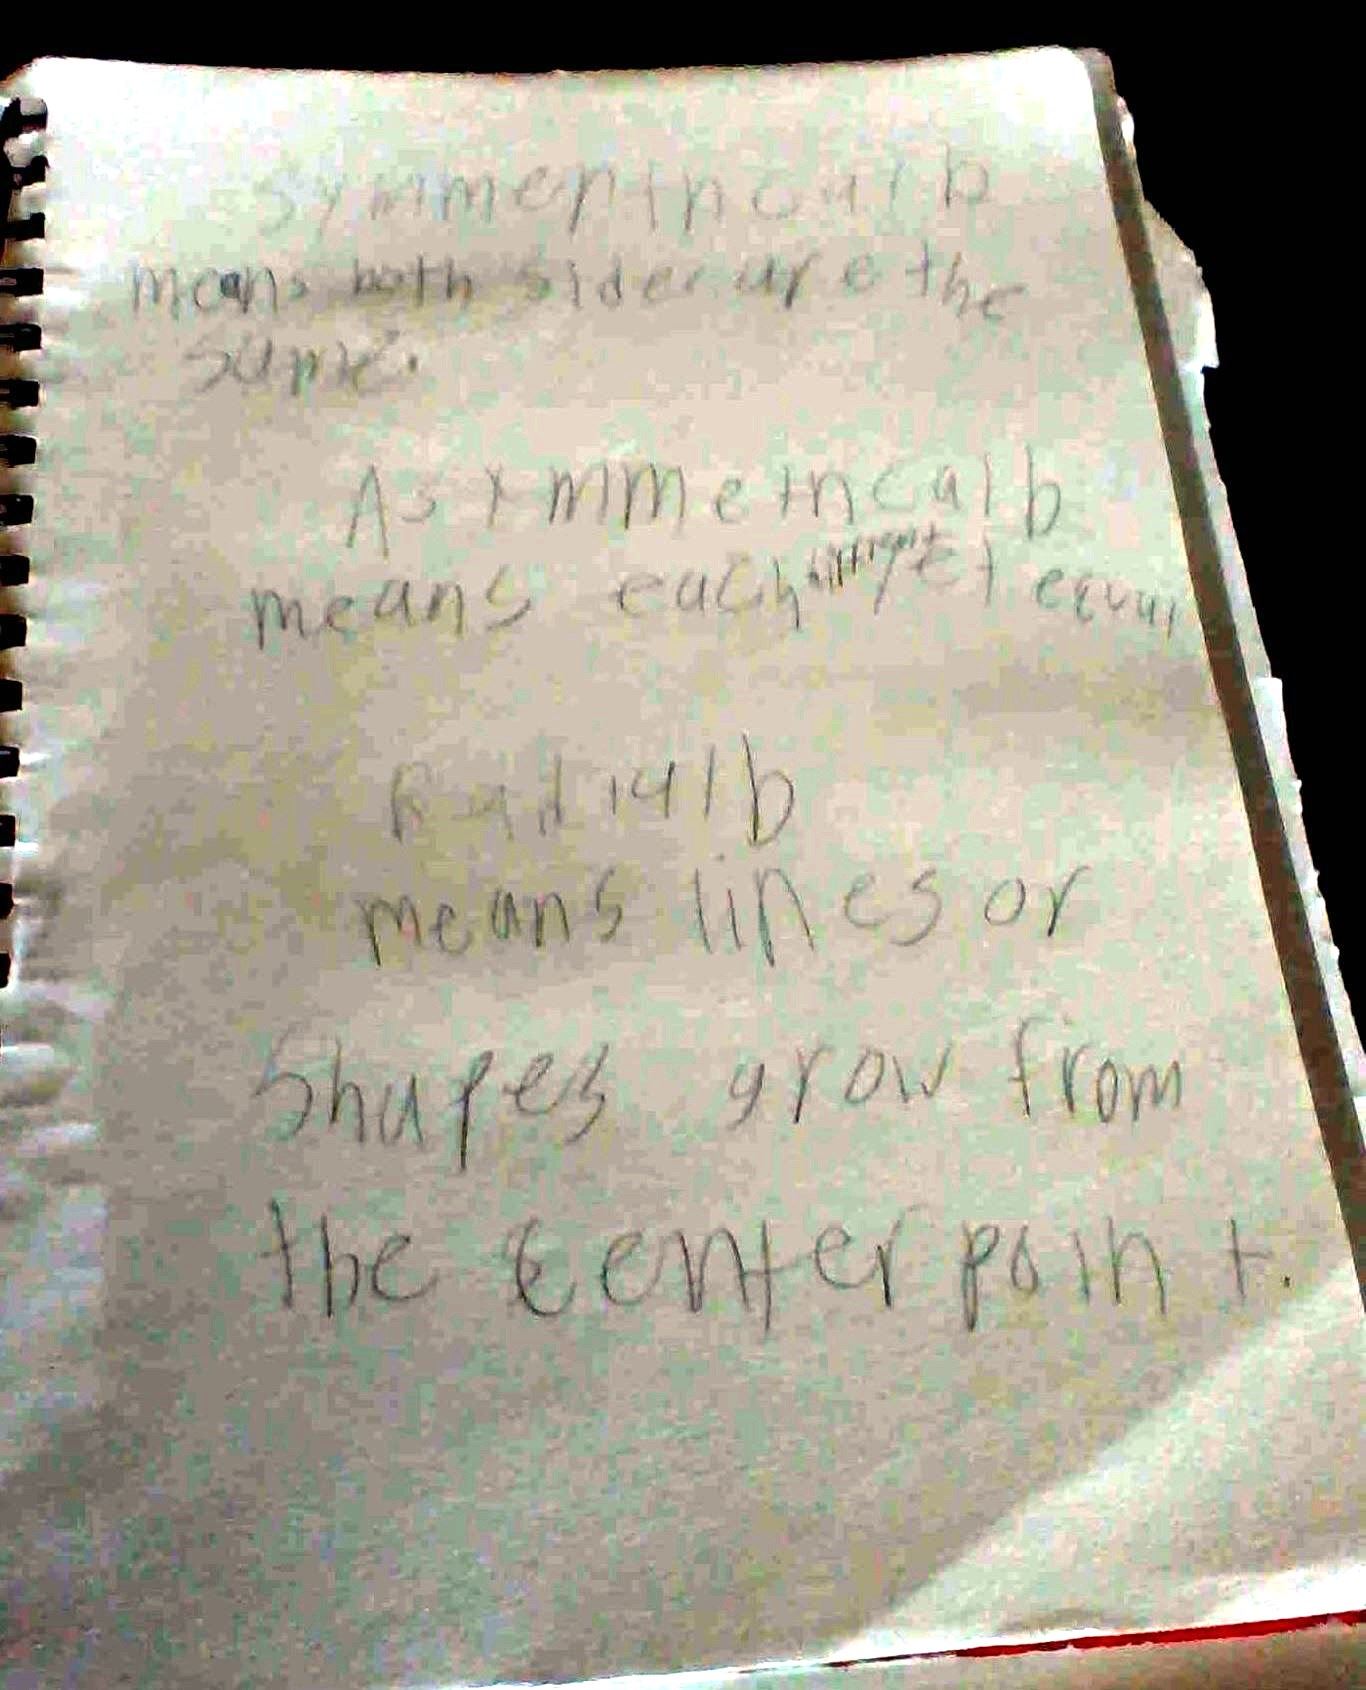 Symmentrical b
means both sides are the
same.
Asymmetrical b
means each different yet equal
Radial b
means lines or
Shapes grow from
the center point.